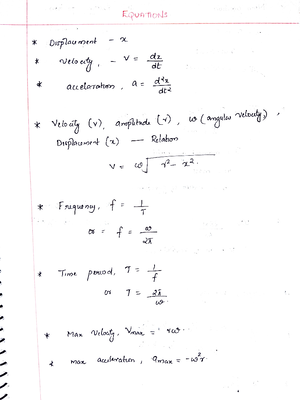 EQUATIONS
* Displacement - x
* Velocity, - V = dx/dt
* acceleration, a = d²x/dt²
* Velocity (v), amplitude (r), ω (angular velocity),
Displacement (x) — Relation
V = ω√(r² - x²)
* Frequency, f = 1/T
or = f = ω/2π
* Time period, T = 1/f
or T = 2π/ω
* Max Velocity, Vmax = rω
* max acceleration, amax = -ω²r